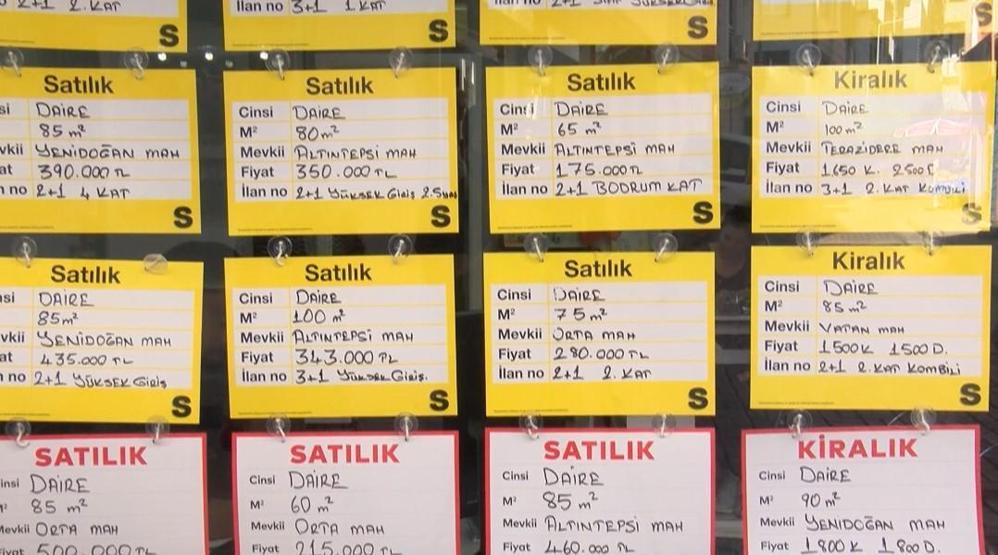 2+1 2. KAT
S
İlan no 3+1 1 KAT
S
İlan no 2+1
S
S
Satılık
si DAİRE
85 m²
vkii YENİDOĞAN MAH
at 390.000 TL
n no 2+1 4 KAT
S
Satılık
Cinsi DAİRE
M² 80 m²
Mevkii ALTINTEPSİ MAH
Fiyat 350.000 TL
İlan no 2+1 YÜKSEK GİRİŞ 2.5
S
Satılık
Cinsi DAİRE
M² 65 m²
Mevkii ALTINTEPSİ MAH
Fiyat 175.000 TL
İlan no 2+1 BODRUM KAT
S
Kiralık
Cinsi DAİRE
M² 100 m²
Mevkii TERAZİDERE MAH
Fiyat 1650 K. 2500
İlan no 3+1 2. KAT KOMBİLİ
S
Satılık
nsi DAİRE
85 m²
vkii YENİDOĞAN MAH
at 435.000 TL
n no 2+1 YÜKSEK GİRİŞ
S
Satılık
Cinsi DAİRE
M² 100 m²
Mevkii ALTINTEPSİ MAH
Fiyat 343.000 TL
İlan no 3+1 YÜKSEK GİRİŞ.
S
Satılık
Cinsi DAİRE
M² 75 m²
Mevkii ORTA MAH
Fiyat 280.000 TL
İlan no 2+1 2. KAT
S
Kiralık
Cinsi DAİRE
M² 85 m²
Mevkii VATAN MAH
Fiyat 1500 K 1500 D.
İlan no 2+1 2. KAT KOMBİLİ
S
SATILIK
insi DAİRE
M² 85 m²
Mevkii ORTA MAH
Fiyat 500.000 TL
SATILIK
Cinsi DAİRE
M² 60 m²
Mevkii ORTA MAH
Fiyat 215.000 TL
SATILIK
Cinsi DAİRE
M² 85 m²
Mevkii ALTINTEPSİ MAH
Fiyat 460.000 TL
KİRALIK
Cinsi DAİRE
M² 90 m²
Mevkii YENİDOĞAN MAH
Fiyat 1800 K 1800 D.